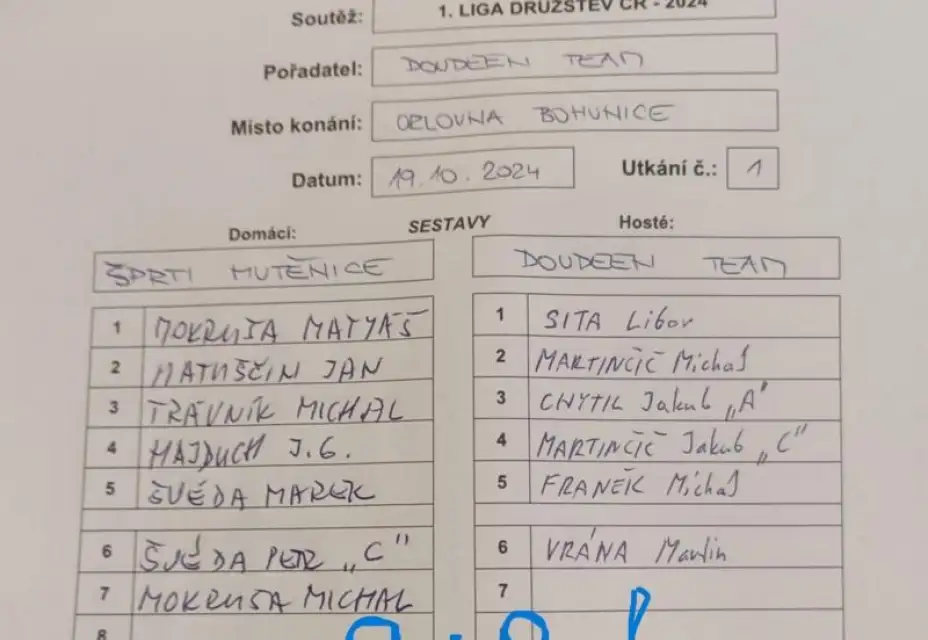 Soutěž: 1. LIGA DRUŽSTEV ČR - 2024
Pořadatel: DOUDEEN TEAM
Místo konání: ORLOVNA BOHUNICE
Datum: 19.10.2024 Utkání č.: 1
SESTAVY
Domácí: Hosté:
ŠPRTI MUTĚNICE DOUDEEN TEAM
1 MOKRUŠA MATYÁŠ 1 SITA Libor
2 MATUŠČIN JAN 2 MARTINČIČ Michal
3 TRÁVNÍK MICHAL 3 CHYTIL Jakub „A"
4 HAJDUCH J.G. 4 MARTINČIČ Jakub „C"
5 ŠVÉDA MAREK 5 FRANĚK Michal
6 ŠVÉDA PETR „C" 6 VRÁNA Martin
7 MOKRUŠA MICHAL 7
8